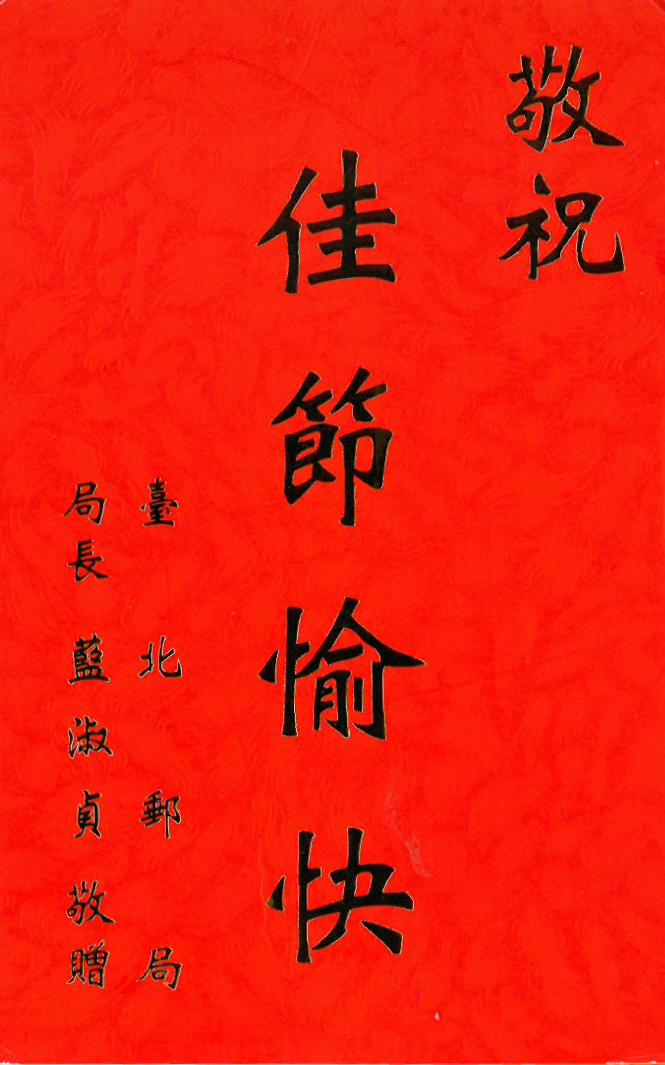 敬祝
佳節愉快
臺北郵局
局長 藍淑貞 敬贈